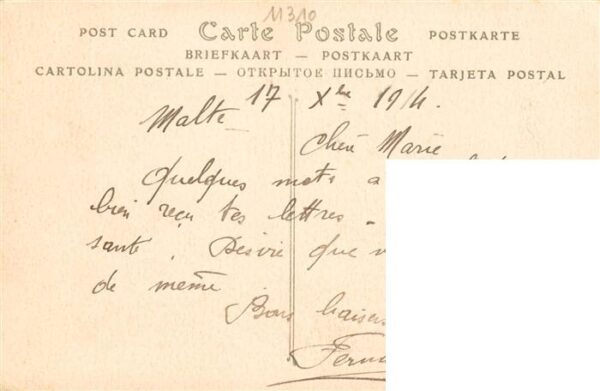 11310
POST CARD Carte Postale POSTKARTE
BRIEFKAART — POSTKAART
CARTOLINA POSTALE — ОТКРЫТОЕ ПИСЬМО — TARJETA POSTAL
Malte 17 Xbre 1914.
Chère Marie
Quelques mots a
bien reçu tes lettres
santé. Désire que
de même
Bons baisers